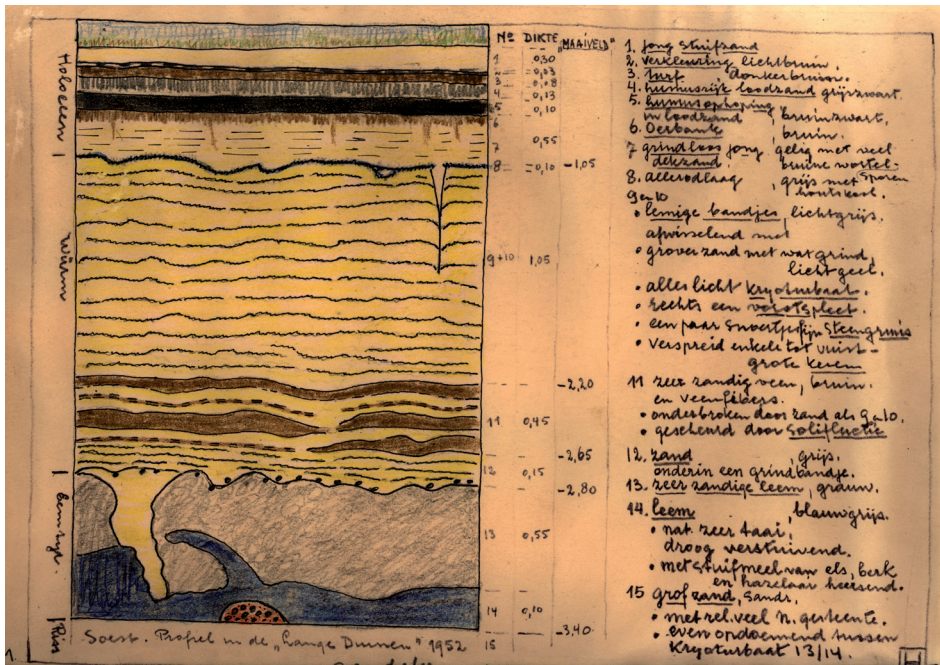 No DIKTE "MAAIVELD"
1 0,30
2 0,03
3 0,08
4 0,13
5 0,10
6
7 0,55
8 0,10 -1,05
9+10 1,05
-2,20
11 0,45
-2,65
12 0,15
-2,80
13 0,55
14 0,10
-3,40
15
Holoceen
Würm
Eem-
Riss
1. jong stuifzand
2. verkleuring lichtbruin.
3. turf, donkerbruin.
4. humusrijk loodzand grijszwart.
5. humusophoping
in loodzand, bruinzwart.
6. Oerbank, bruin.
7 grindloos jong gelig met veel
dekzand. bruine wortel-
sporen
8. allerødlaag, grijs met
houtskool.
9 en 10
• lemige bandjes, lichtgrijs.
afwisselend met
• grover zand met wat grind,
licht geel.
• alles licht kryoturbaat.
• rechts een vorstspleet.
• een paar snoertjes fijn steengruis
• verspreid enkele tot vuist-
grote keien
11 zeer zandig veen, bruin.
en veenfibers.
• onderbroken door zand als 9 en 10.
• gescheurd door solifluctie
12. zand, grijs.
onderin een grindbandje.
13. zeer zandige leem, grauw.
14. leem, blauwgrijs.
• nat zeer taai,
droog verstuivend.
• met stuifmeel van els, berk
en hazelaar heersend.
15 grof zand, Sandr.
• met rel. veel N. gesteente.
• even opdoemend tussen
kryoturbaat 13/14.
Soest. Profiel in de "Lange Duinen" 1952
1.
H